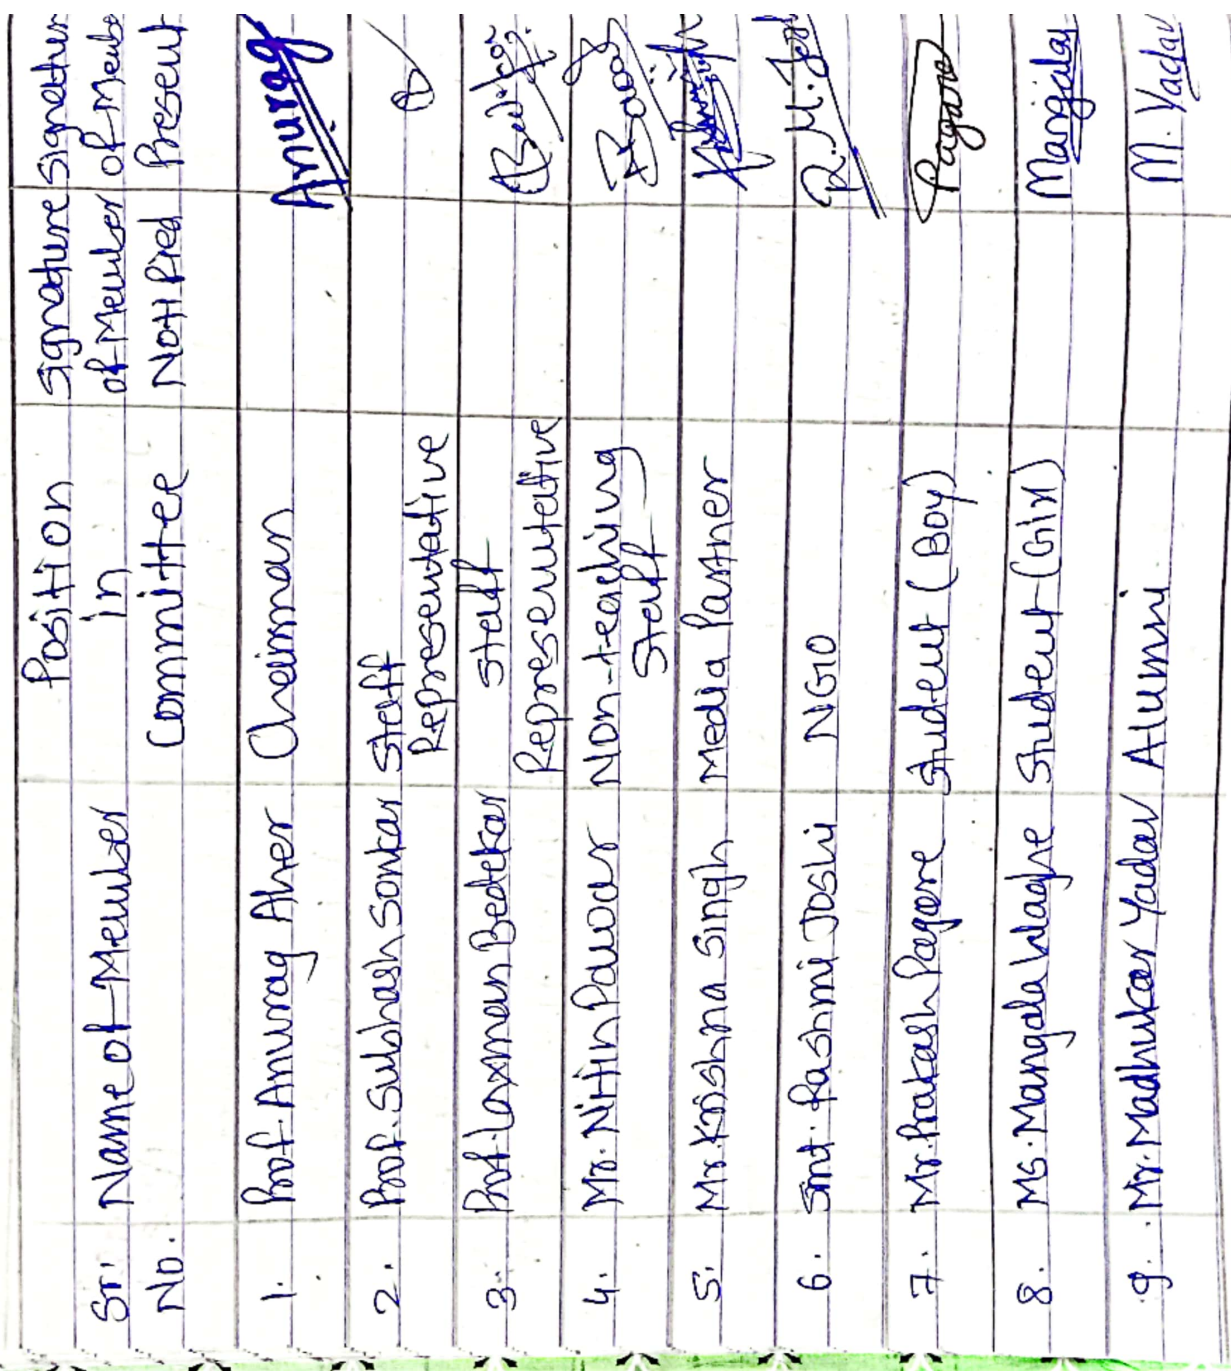 Position Signature Signature
Sr. Name of Member in of Member of Membe
No. Committee Notified Present
1. Prof. Anurag Aher Chairman Anurag
2. Prof. Subhash Sonkar Staff
Representative
3. Prof. Laxman Bedekar Staff
Representative
4. Mr. Nitin Pawar Non-teaching
Staff
5. Mr. Krishna Singh Media Partner
6. Smt. Rashmi Joshi NGO R.M.Joshi
7. Mr. Prakash Pagare Student (Boy) Pagare
8. Ms. Mangala Waghe Student (Girl) Mangala
9. Mr. Madhukar Yadav Alumni M. Yadav